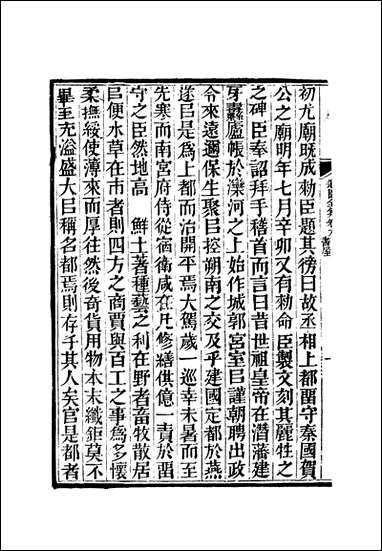 初尤廟旣成勅臣題其榜曰故丞相上都畱守秦國賀
公之廟明年七月辛卯又有勅命臣製文刻其麗牲之
之碑臣奉詔拜手稽首而言曰昔世祖皇帝在潛藩建
牙纛廬帳於灤河之上始作城郭宮室㠯謹朝聘出政
令來遠邇保生聚㠯控朔南之交及乎建國定都於燕
遂㠯是爲上都而治開平焉大駕歲一巡幸未暑而至
先寒而南宮府侍從宿衞咸在凡修繕供億一責於畱
守之臣然地高 鮮土著種藝之利在野者畜牧散居
㠯便水草在市者則四方之商賈與百工之事爲多懷
柔撫綏使薄來而厚往然後奇貨用物本末纖鉅莫不
畢至充溢盛大㠯稱名都焉則存乎其人矣官是都者